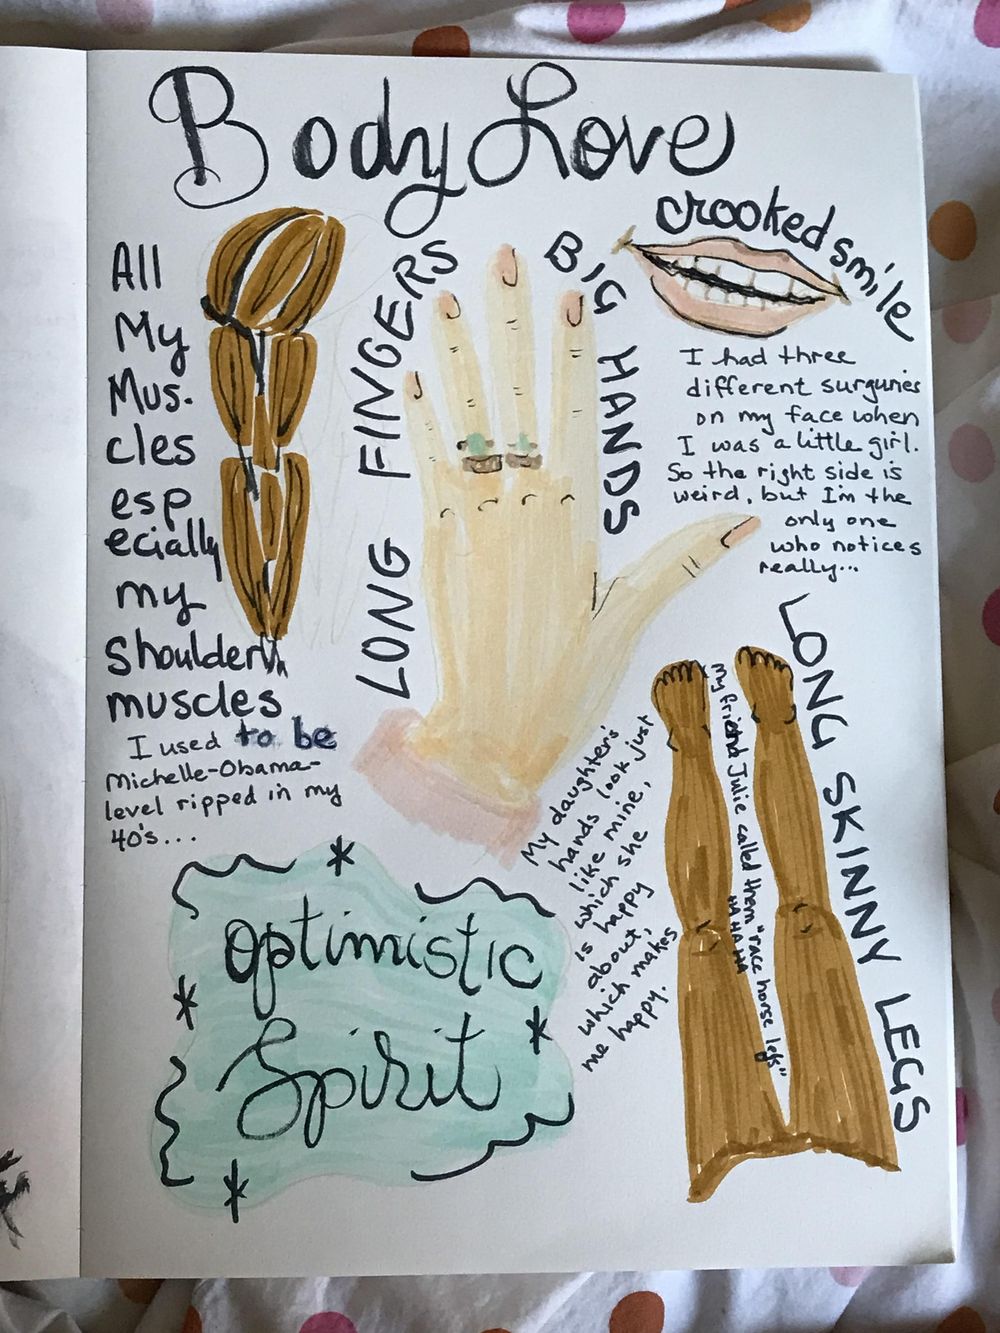 Body Love
All
My
Mus-
cles
esp
ecially
my
shoulder
muscles
I used to be
Michelle-Obama-
level ripped in my
40's...
LONG FINGERS
BIG HANDS
crooked smile
I had three
different surguries
on my face when
I was a little girl.
So the right side is
weird, but I'm the
only one
who notices
really...
My daughter's
hands look just
like mine,
which she
is happy
about,
which makes
me happy.
LONG SKINNY LEGS
My friend Julie called them "race horse legs"
HA HA HA
optimistic
Spirit